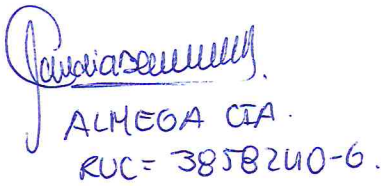 ALMEGA CIA.
RUC= 3858240-6.